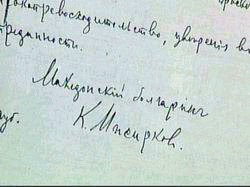 сокопревосходительство, увѣренія въ
преданности.
Македонскій болгаринъ
К. Мисирковъ.